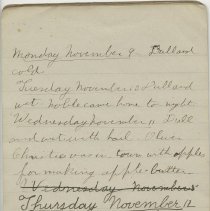 Monday November 9 Dull and
cold.
Tuesday November 10 Dull and
wet. Noble came home to night
Wednesday November 11 Dull
and wet with hail. Oliver
was in town with apples
for making apple butter
Wednesday November
Thursday November 12